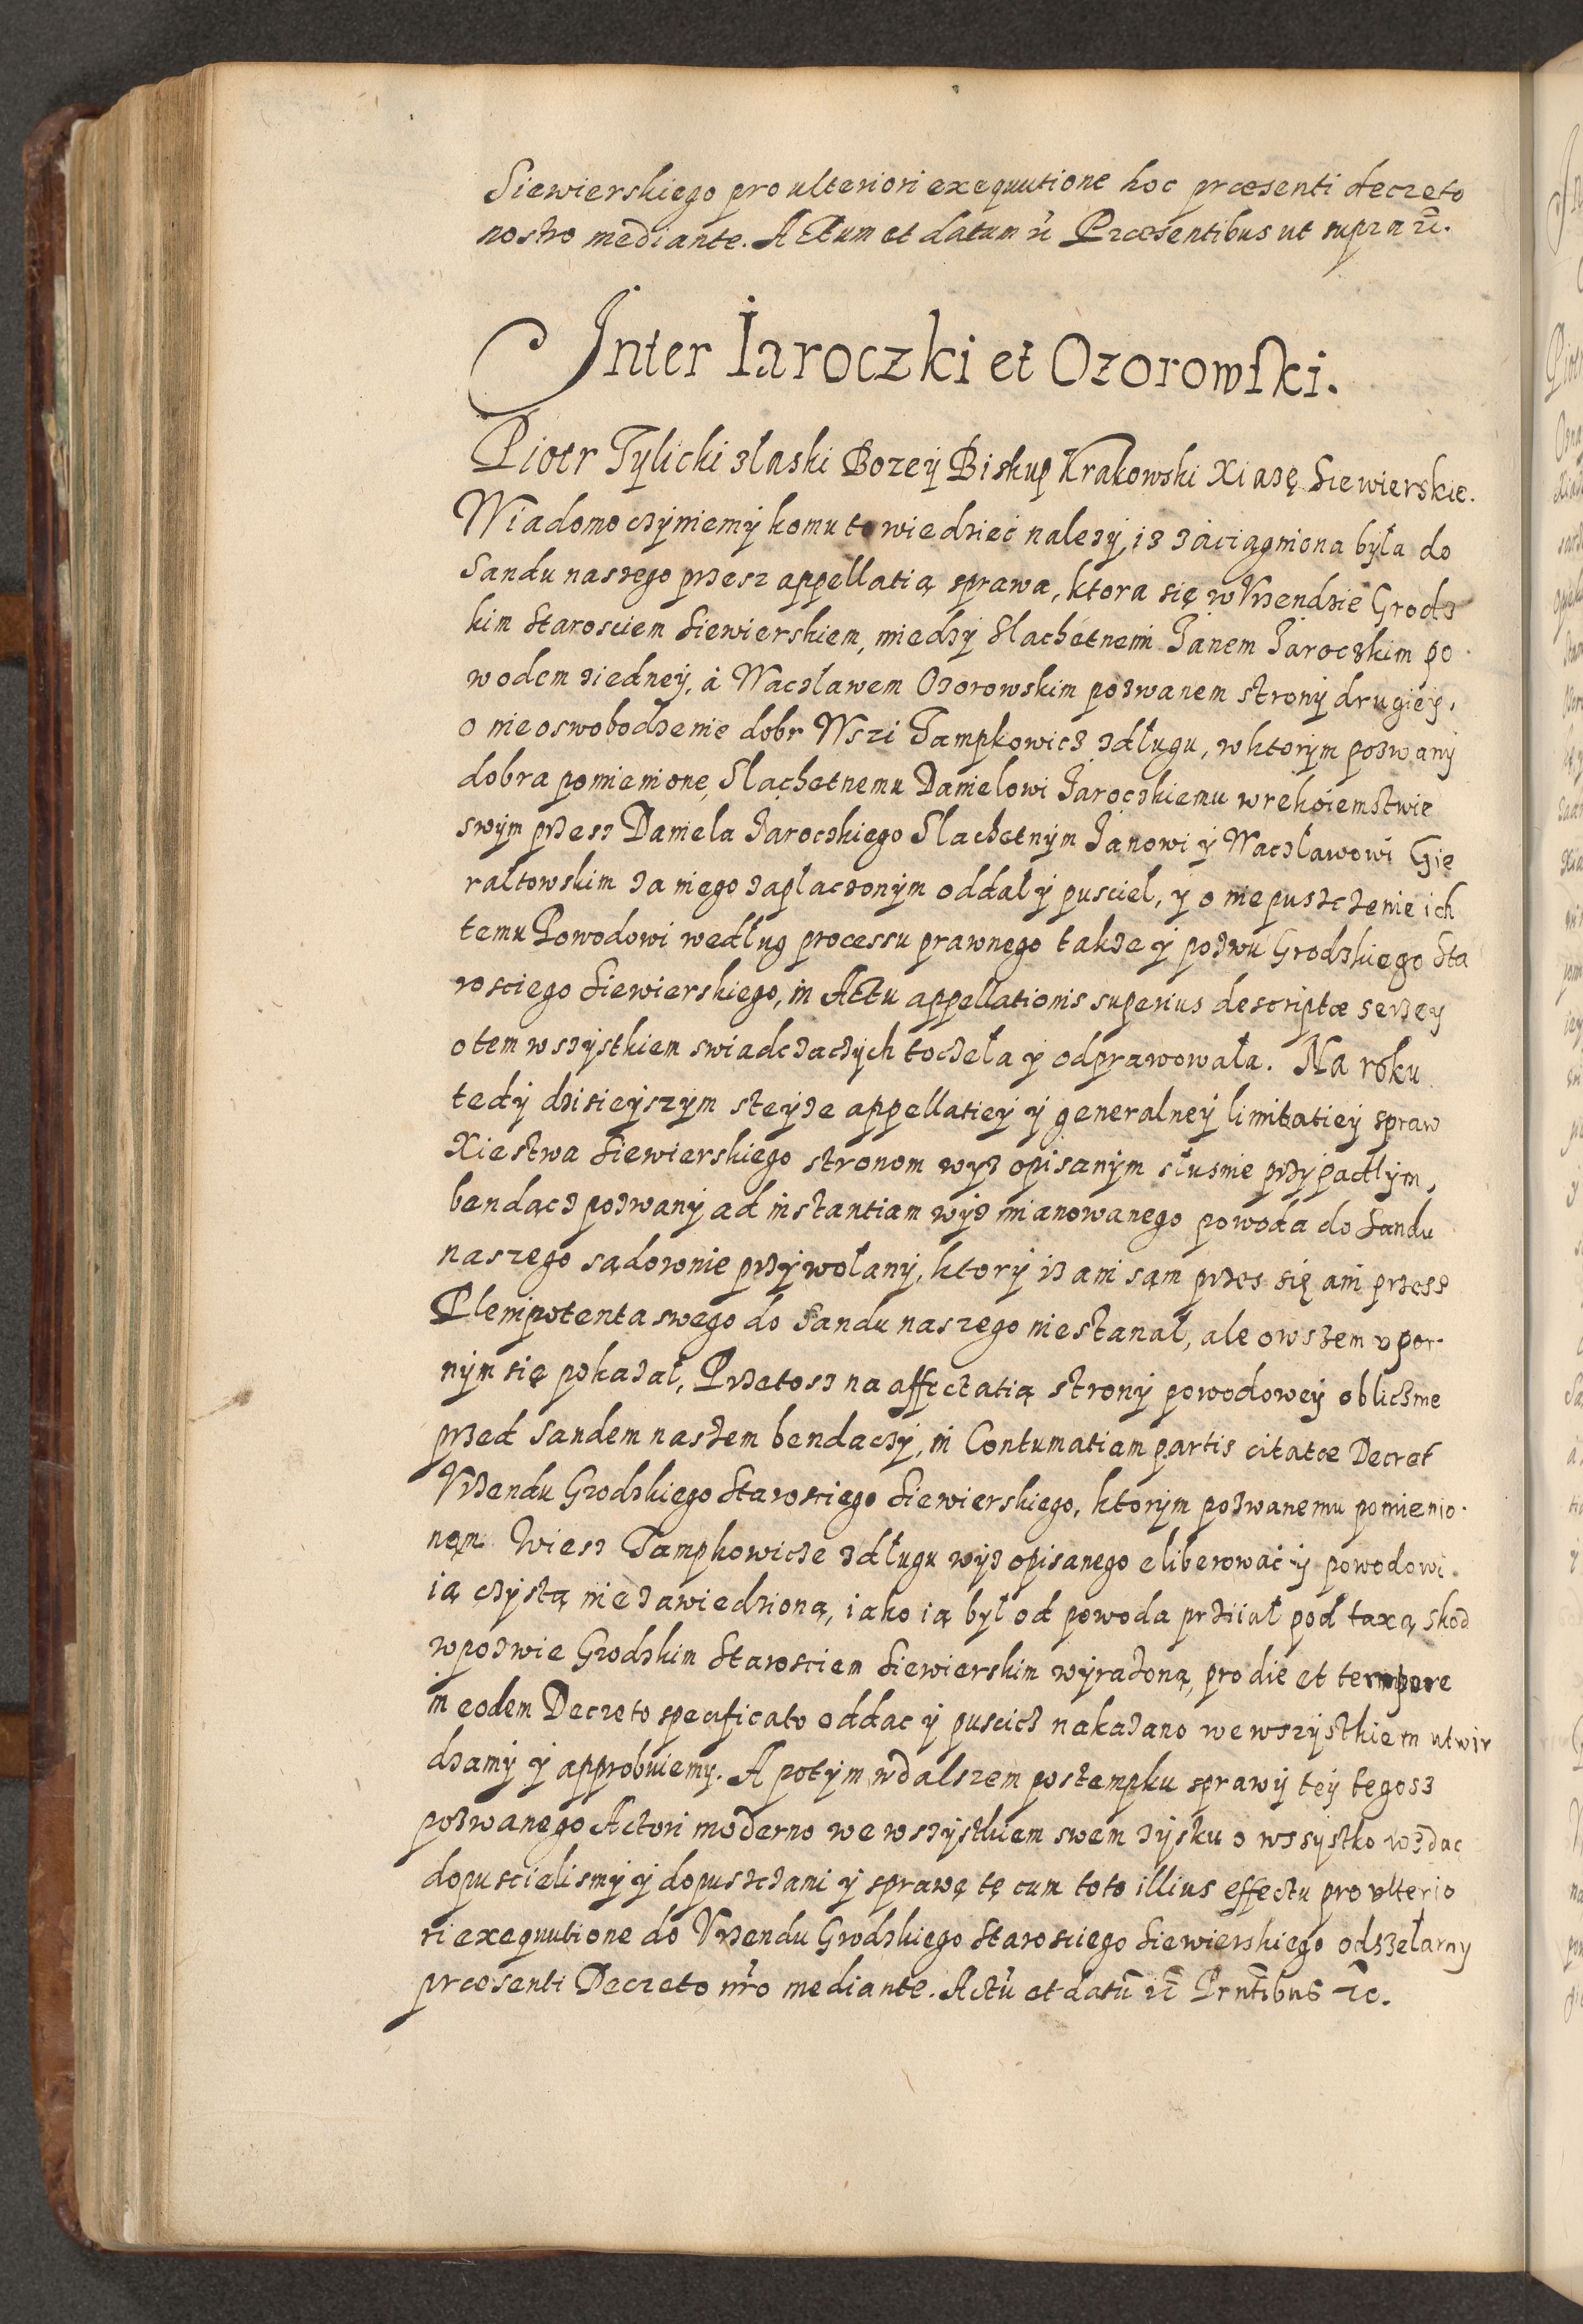 Siewierskiego pro ulteriori exequutione hoc præsenti decreto
nostro mediante. Actum et datum ut Præsentibus ut supra etc.
Inter Jaroczki et Ozorowski.
Piotr Tylicki złaski Bozey Biskup Krakowski Xiazę Siewierskie.
Wiadomo czyniemy komu to wiedzieć nalezy, iz záciągniona była do
Sandu naszego przesz appellatią sprawa, ktora się w Vrzendzie Grodz
kim Starosciem Siewierskiem, miedzy Slachetnemi Janem Jaroczkim po
wodem ziedney, á Waczławem Ozorowskim pozwanem strony drugiey,
o nie oswobodzenie dobr Wszi Tampkowicz zdługu, w ktorym pozwany
dobra pomienione, Slachetnemu Danielowi Jaroczkiemu w rekoiemstwie
swym przesz Daniela Jaroczkiego Slachetnym Janowi y Waczławowi Gie
raltowskim za niego zaplaczonym oddał y pusciel, y o niepuszczenie ich
temu Powodowi według processu prawnego takze y pozwu Grodzkiego Sta
rosciego Siewierskiego, in Actu appellationis superius descriptæ serzey
o tem wszystkiem swiadczaczych toczeła y odprawowała. Na roku
tedy dzisieyszym steyze appellatiey y generalney limitatiey spraw
Xiestwa Siewierskiego stronom wyz opisanym słusnie przypadłym,
bendącz pozwany ad instantiam wyz mianowanego powoda do Sandu
naszego sądownie przywołany, ktory iz ani sąm przes się ani przesz
Plenipotenta swego do Sandu naszego niestanał, ale owszem vpor-
nym się pokazał, Przetosz na affectatią strony powodowey obliczne
przed Sandem naszem bendaczy, in Contumatiam partis citatæ Decret
Vrzendu Grodzkiego Starosciego Siewierskiego, ktorym pozwanemu pomienio-
nem Wiesz Tampkowicze zdługu wyz opisanego eliberować y powodowi
ią czystą nie zawiedzioną, iako ią był od powoda prziiał pod taxą skod
w pozwie Grodzkim Starosciem Siewierskim wyrażoną, pro die et tempore
in eodem Decreto specificato oddac y puscicz nakazano we wszystkiem utwir
dzamy y approbuiemy. A potym wdalszem postempku sprawy tey tegosz
pozwanego Actori moderno we wszystkiem swem zysku o wszystko wzdac
dopuscielismy y dopuszczami y sprawę tę cum toto illius effectu pro vlterio
ri exequutione do Vrzendu Grodzkiego Starosciego Siewierskiego odszełamy
præsenti Decreto nro mediante. Actu et datu etc Prntibus etc.